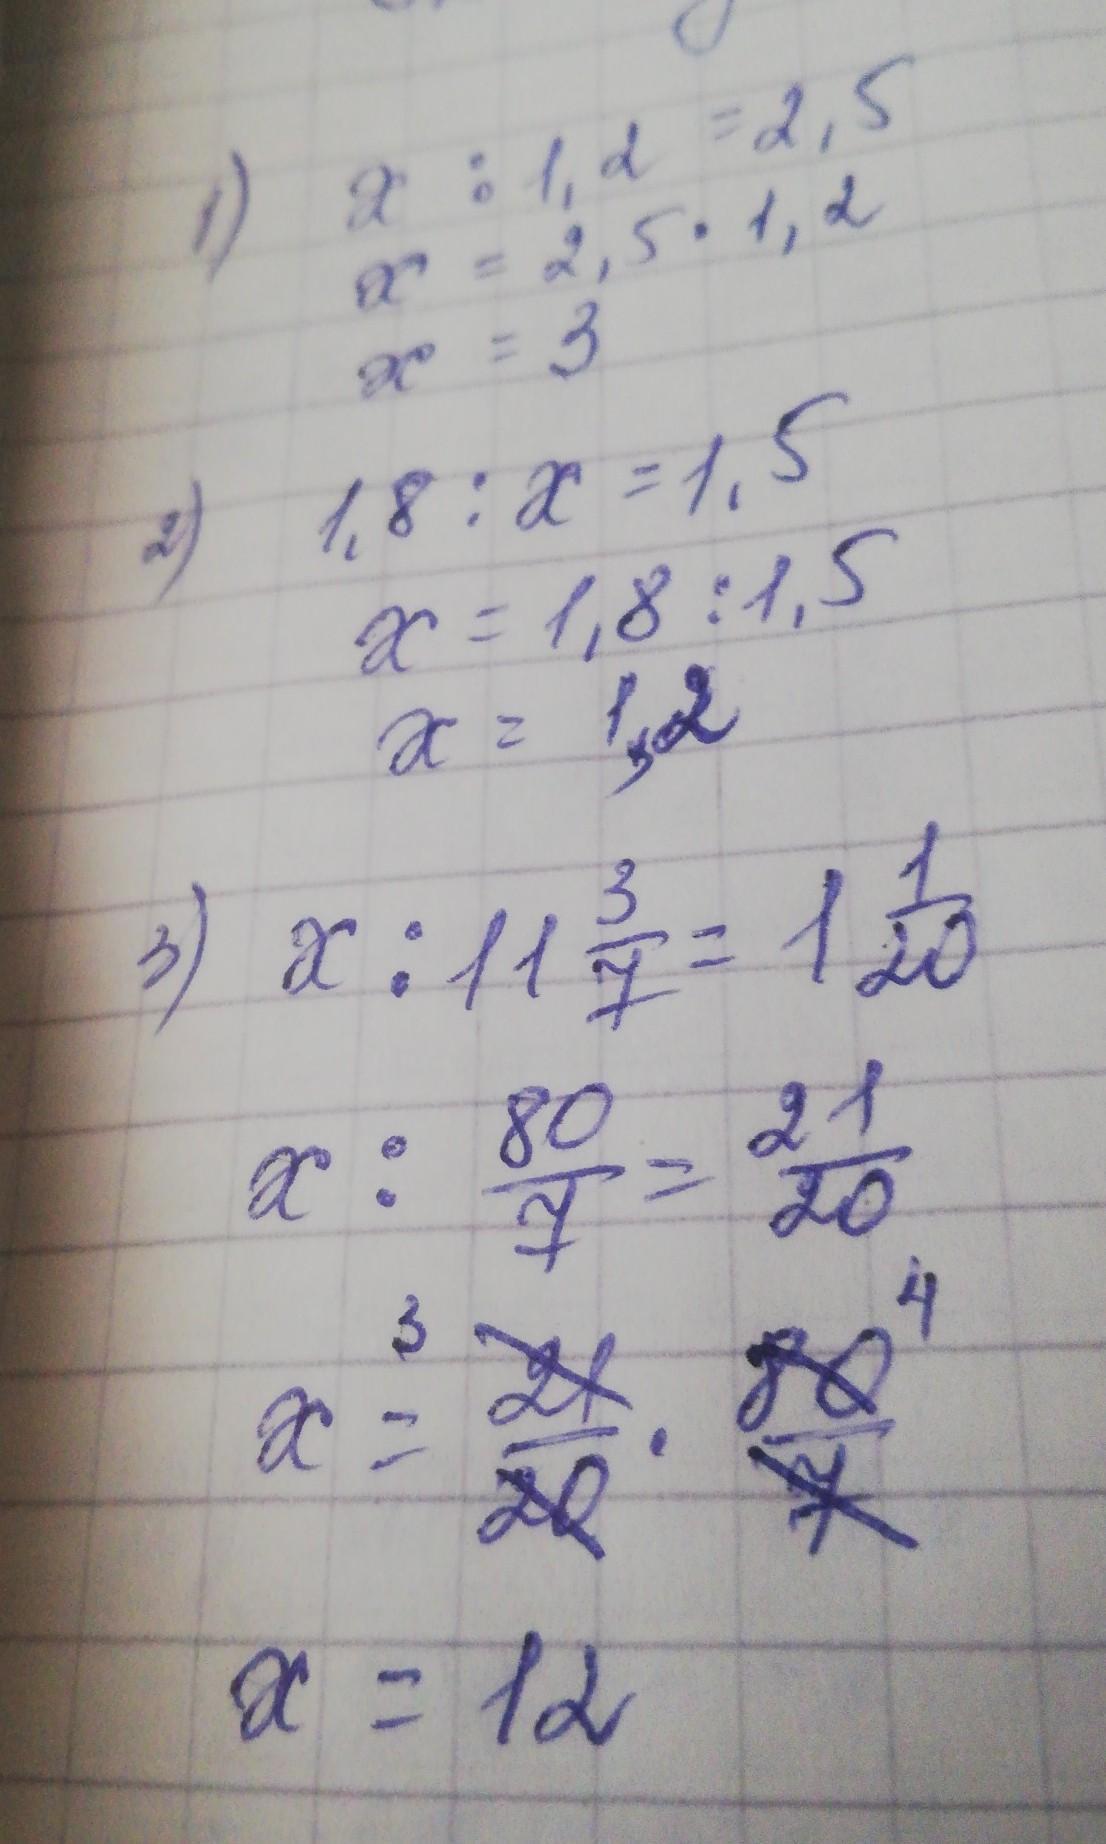 1) x : 1,2 = 2,5
x = 2,5 · 1,2
x = 3
2) 1,8 : x = 1,5
x = 1,8 : 1,5
x = 1,2
3) x : 11 3/7 = 1 1/20
x : 80/7 = 21/20
3 4
x = 21/20 · 80/7
x = 12